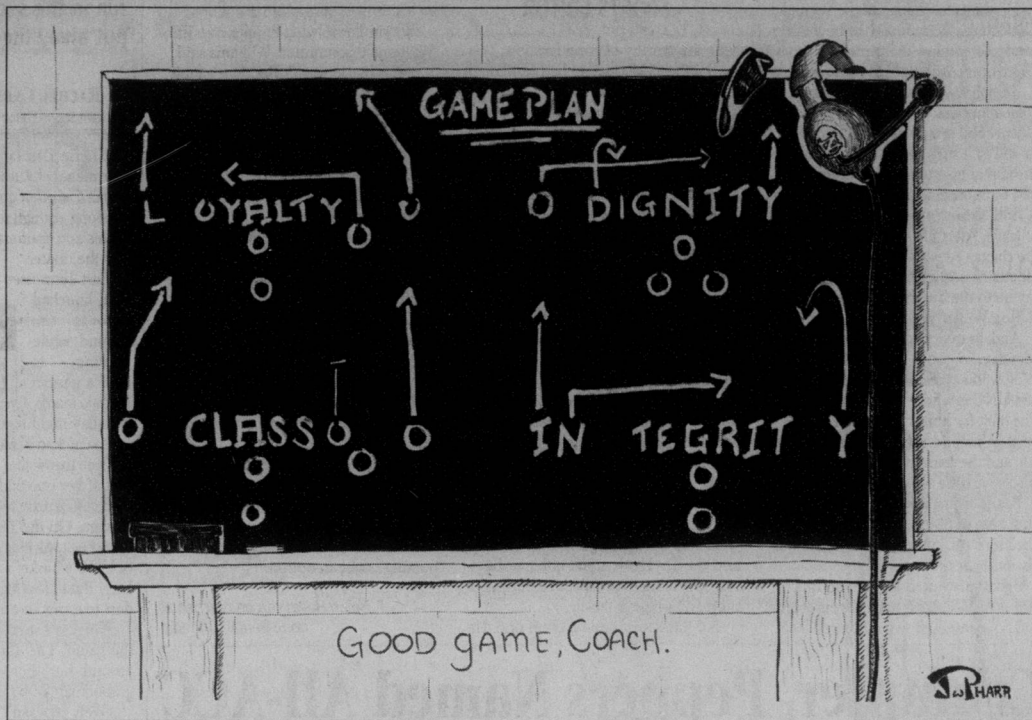 GAME PLAN
LOYALTY
DIGNITY
CLASS
INTEGRITY
GOOD GAME, COACH.
JWPHARR